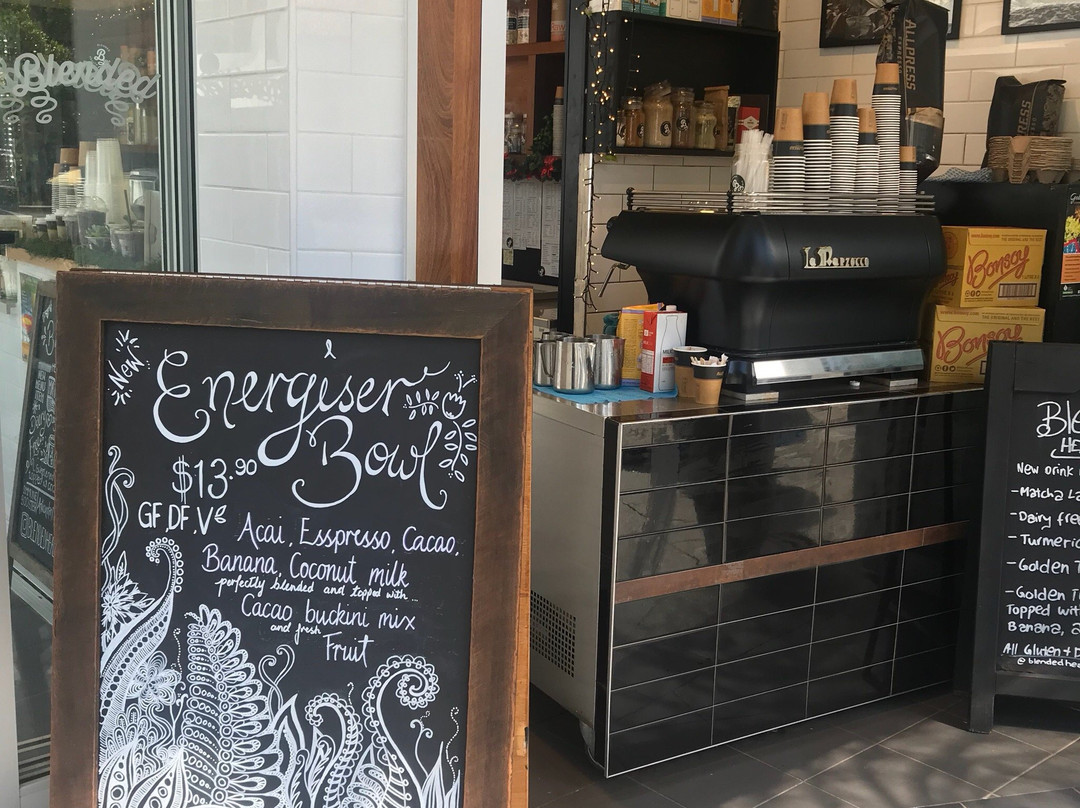 Blended
New
Energiser
Bowl
$13.90
GF, DF, V
Acai, Esspresso, Cacao,
Banana, Coconut milk
perfectly blended and topped with...
Cacao buckini mix
and fresh
Fruit
ALLPRESS
La Marzocco
Bonsoy
Bonsoy
Ble
HE
New Drink
- Matcha La
- Dairy fre
- Turmeric
- Golden T
- Golden T
Topped wit
Banana, a
All Gluten + D
@blendedhea